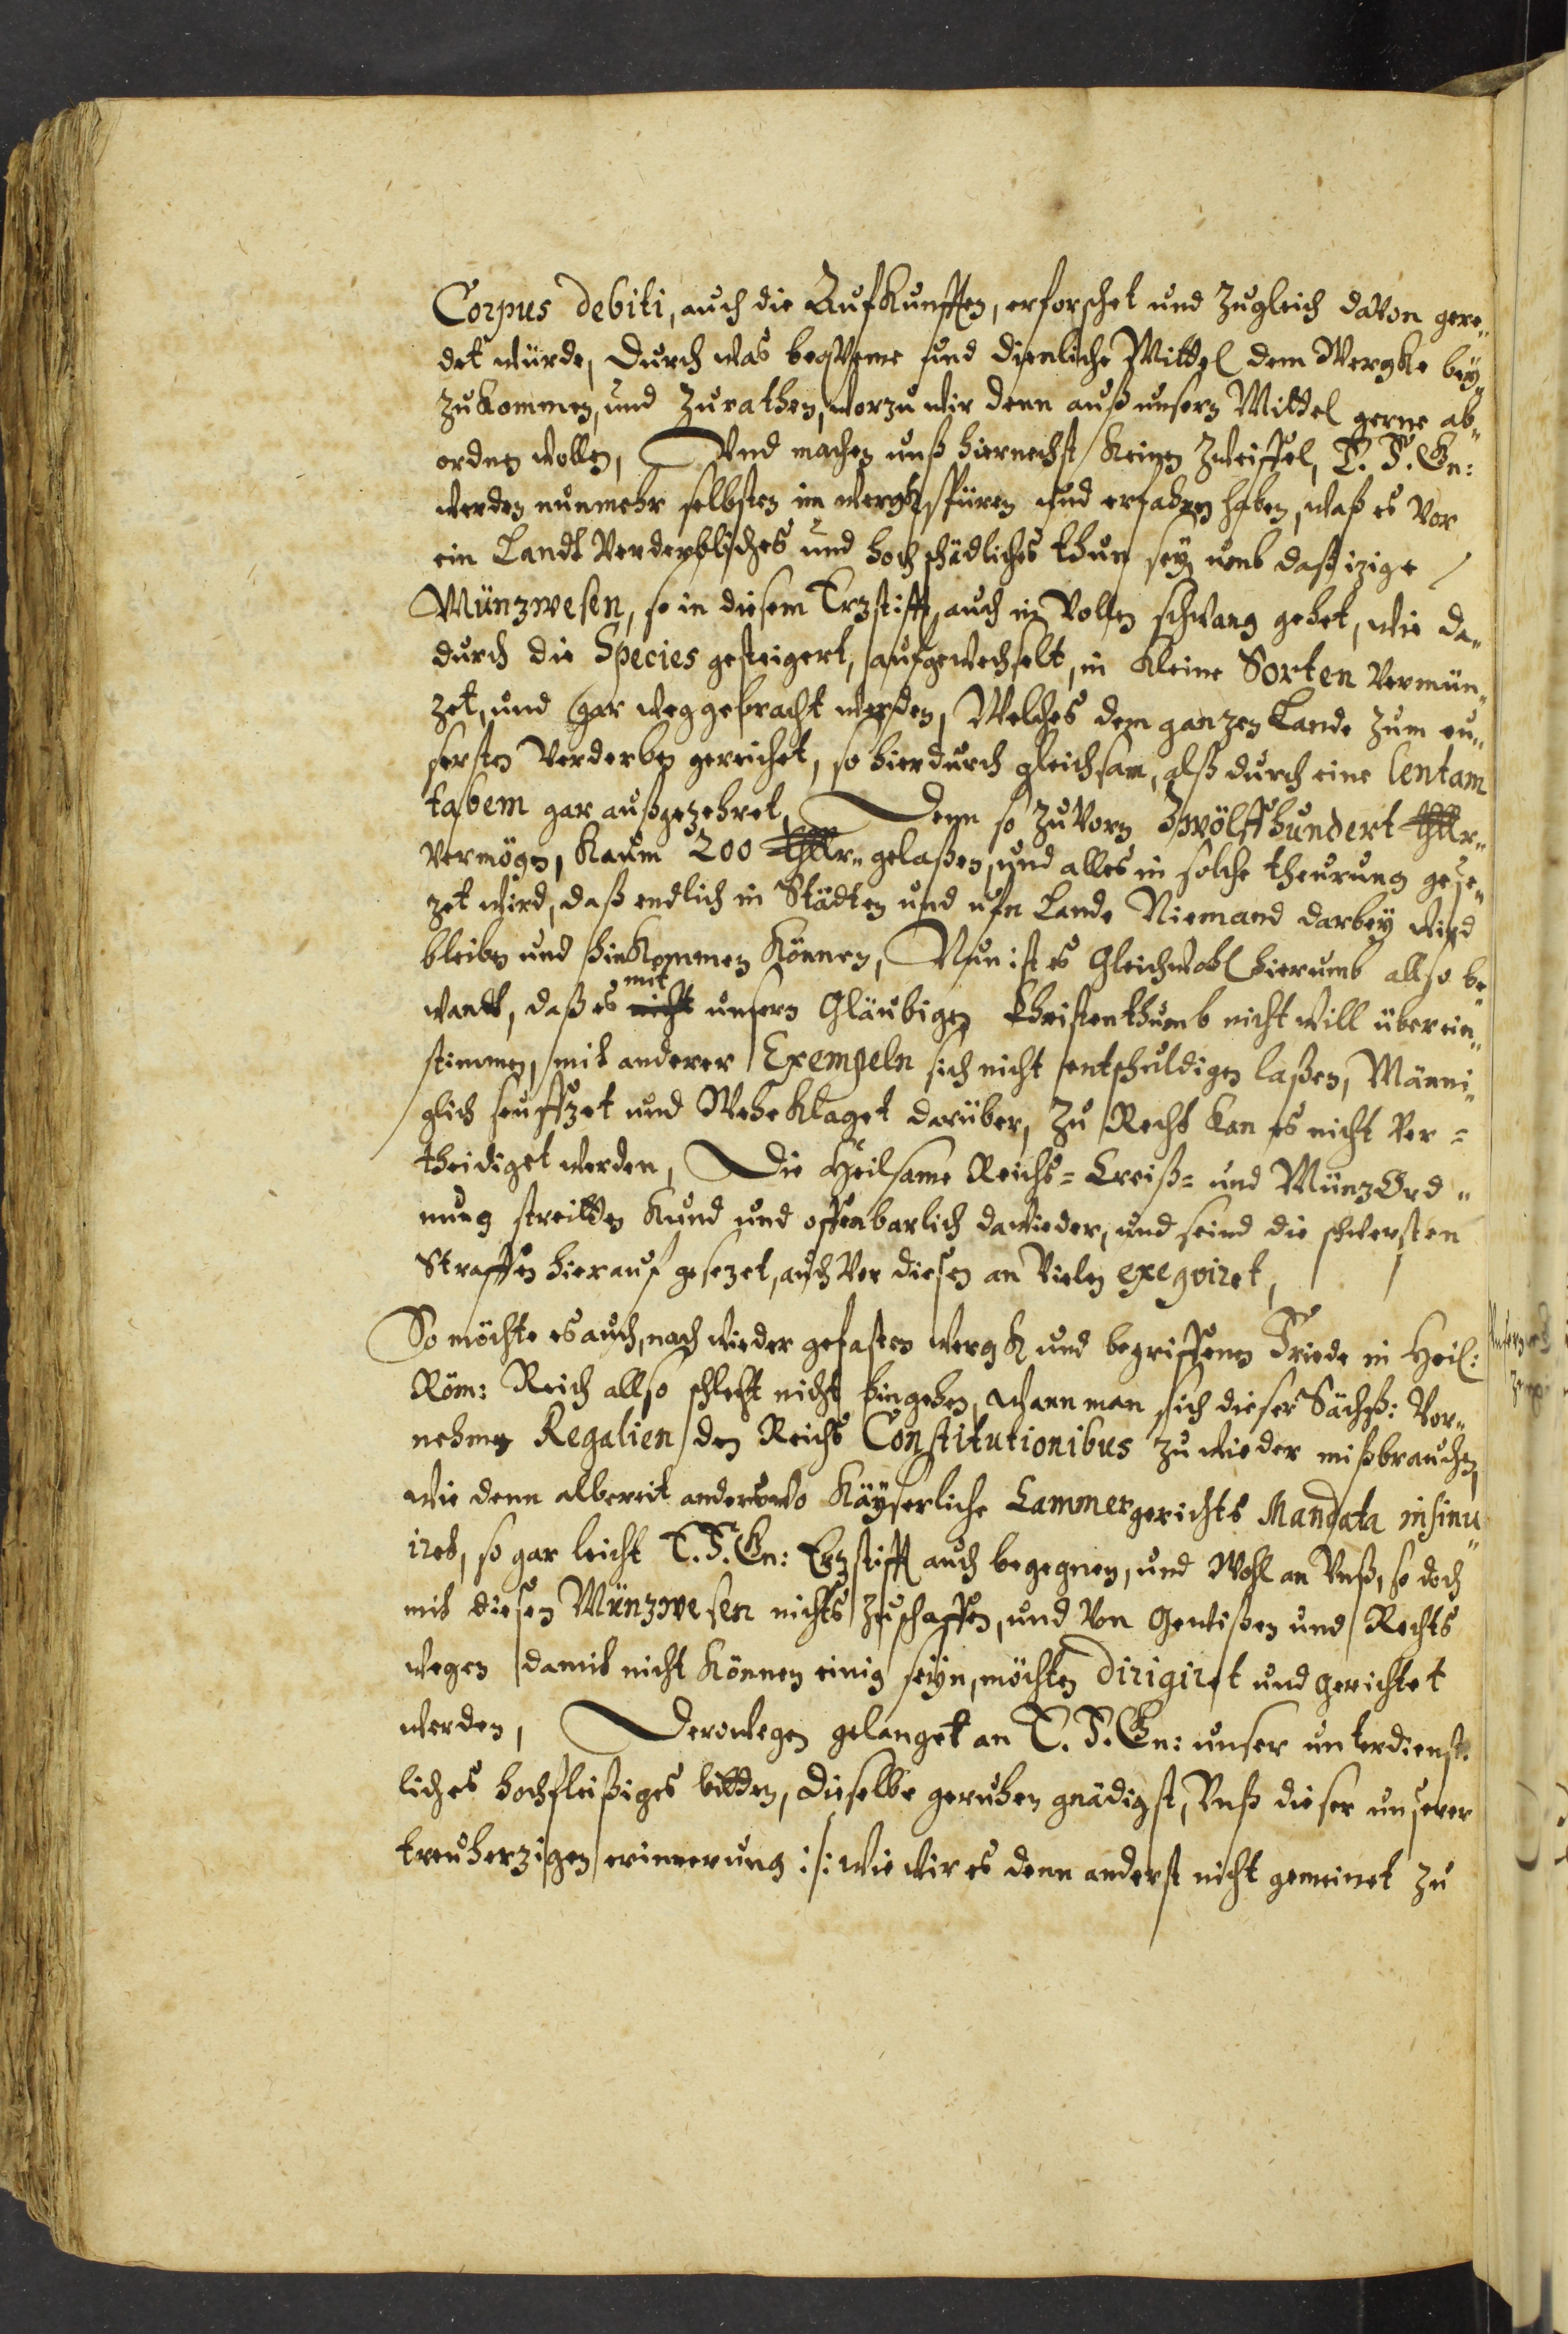 Corpus debiti, auch die Aufkunfften, erforschet und zugleich davon gere„
det würde, durch was beqveme und dienliche Mittel dem Wergke bey„
zukommen, und zurathen, worzu wir denn auß unsern Mittel gerne ab„
ordnen wollen, Und machen unß hiernechst keinen Zweiffel, E. F. Gn:
werden nunmehr selbsten im wergk spüren und erfahren haben, waß es vor
ein Landt verderbliches und hoch schädliches thun sey umb daß izige
Münzwesen, so in diesem Erzstifft, auch in vollen schwang gehet, wie da„
durch die Species gesteigert, aufgewechselt, in kleine Sorten vermün„
zet, und gar weggebracht werden, Welches dem ganzen Lande zum eu„
sersten verderben gereichet, so hierdurch gleichsam, alß durch eine lentam
tabem gar außgezehret, Denn so zuvorn Zwölffhundert thlr„
vermögen, kaum 200 thlr„ gelaßen, und alles in solche theurung gese„
zet wird, daß endlich in Städten und ufn Lande Niemand darbey wird
bleiben und hinkommen können, Nun ist es gleichwohl hierumb allso be„
mit
wandt, daß es nicht unsern Gläubigen Christenthumb nicht will überein„
stimmen, mit anderer Exempeln sich nicht entschuldigen laßen, Männi„
glich seuffzet und Wehe klaget darüber, zu Recht kan es nicht ver=
theidiget werden, Die Heilsame Reichs= Creiß= und MünzOrd„
nung streitten kund und offenbarlich dawieder, und seind die schwersten
Straffen hierauf gesezet, auch vor diesen an vielen exeqviret,
So möchte es auch, nach wieder gefasten wergk und begriffenen Friede in Heil:
Röm: Reich allso schlecht nicht hingehen, wann man sich dieser Sächß: Vor„
nehmen Regalien den Reichs Constitutionibus zu wieder mißbrauchen,
wie denn allbereit anderswo Käyserliche Cammergerichts Mandata insinu„
iret, so gar leicht E. F. Gn: Erzstifft auch begegnen, und Wohl an Unß, so doch
mit diesen Münzwesen nichts zuschaffen, und von Gewißen und Rechts
wegen damit nicht können einig seyn, möchten dirigiret und gerichtet
werden, Derowegen gelanget an E. F. Gn: unser unterdienst„
liches hochfleißiges bitten, dieselbe geruhen gnädigst, Unß dieser unserer
treuherzigen erinnerung :/: wie wir es denn anderst nicht gemeinet zu